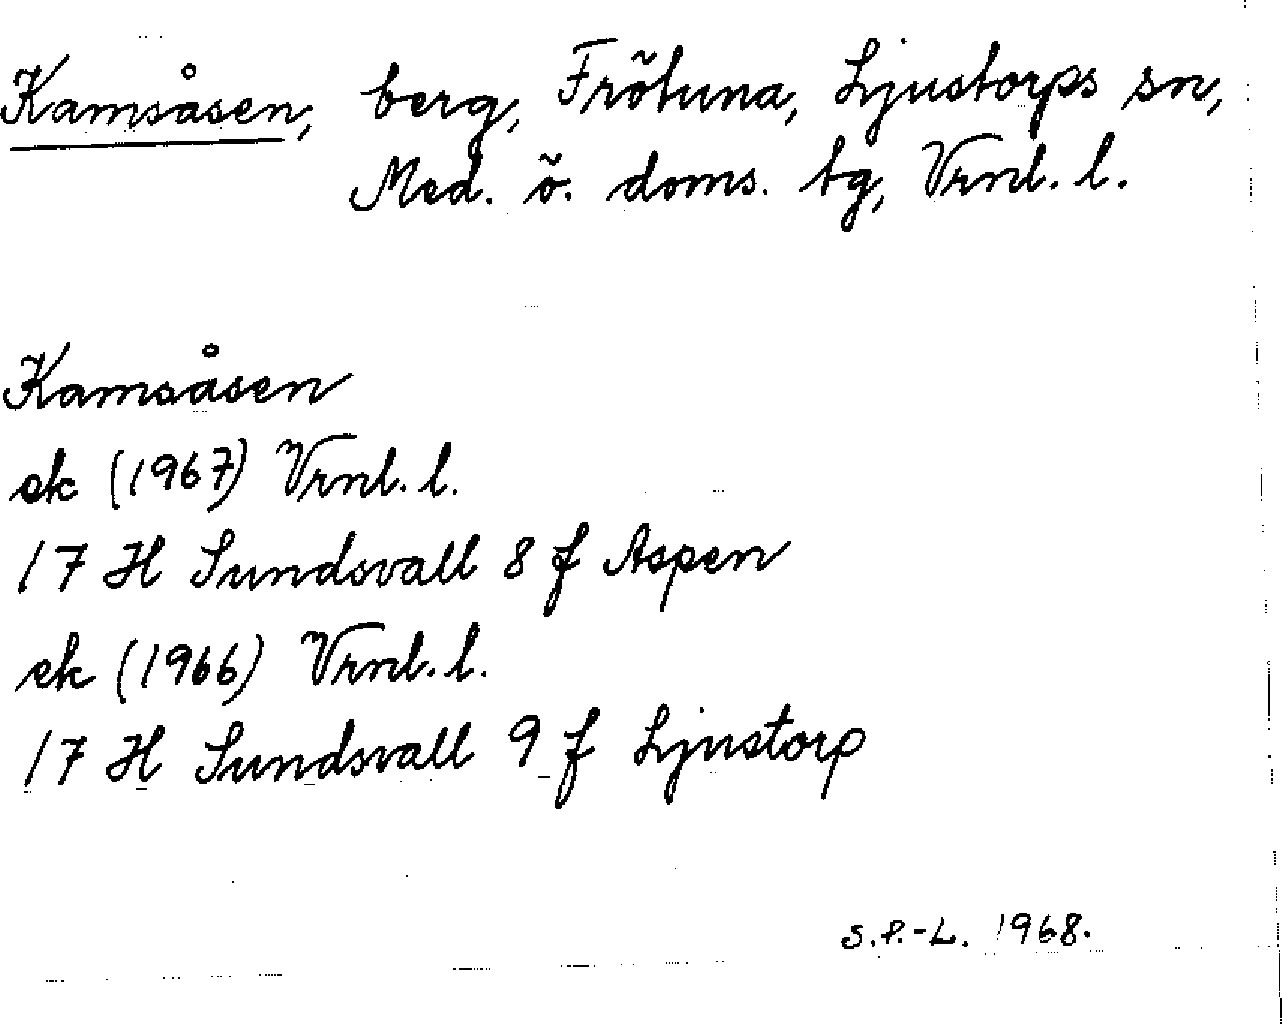 Kamsåsen, berg, Frötuna, Ljustorps sn,
Med. ö. doms. tg, Vrnl. l.
Kamsåsen
ek (1967) Vrnl. l.
17 H Sundsvall 8 f Aspen
ek (1966) Vrnl. l.
17 H Sundsvall 9 f Ljustorp
S.P.-L. 1968.